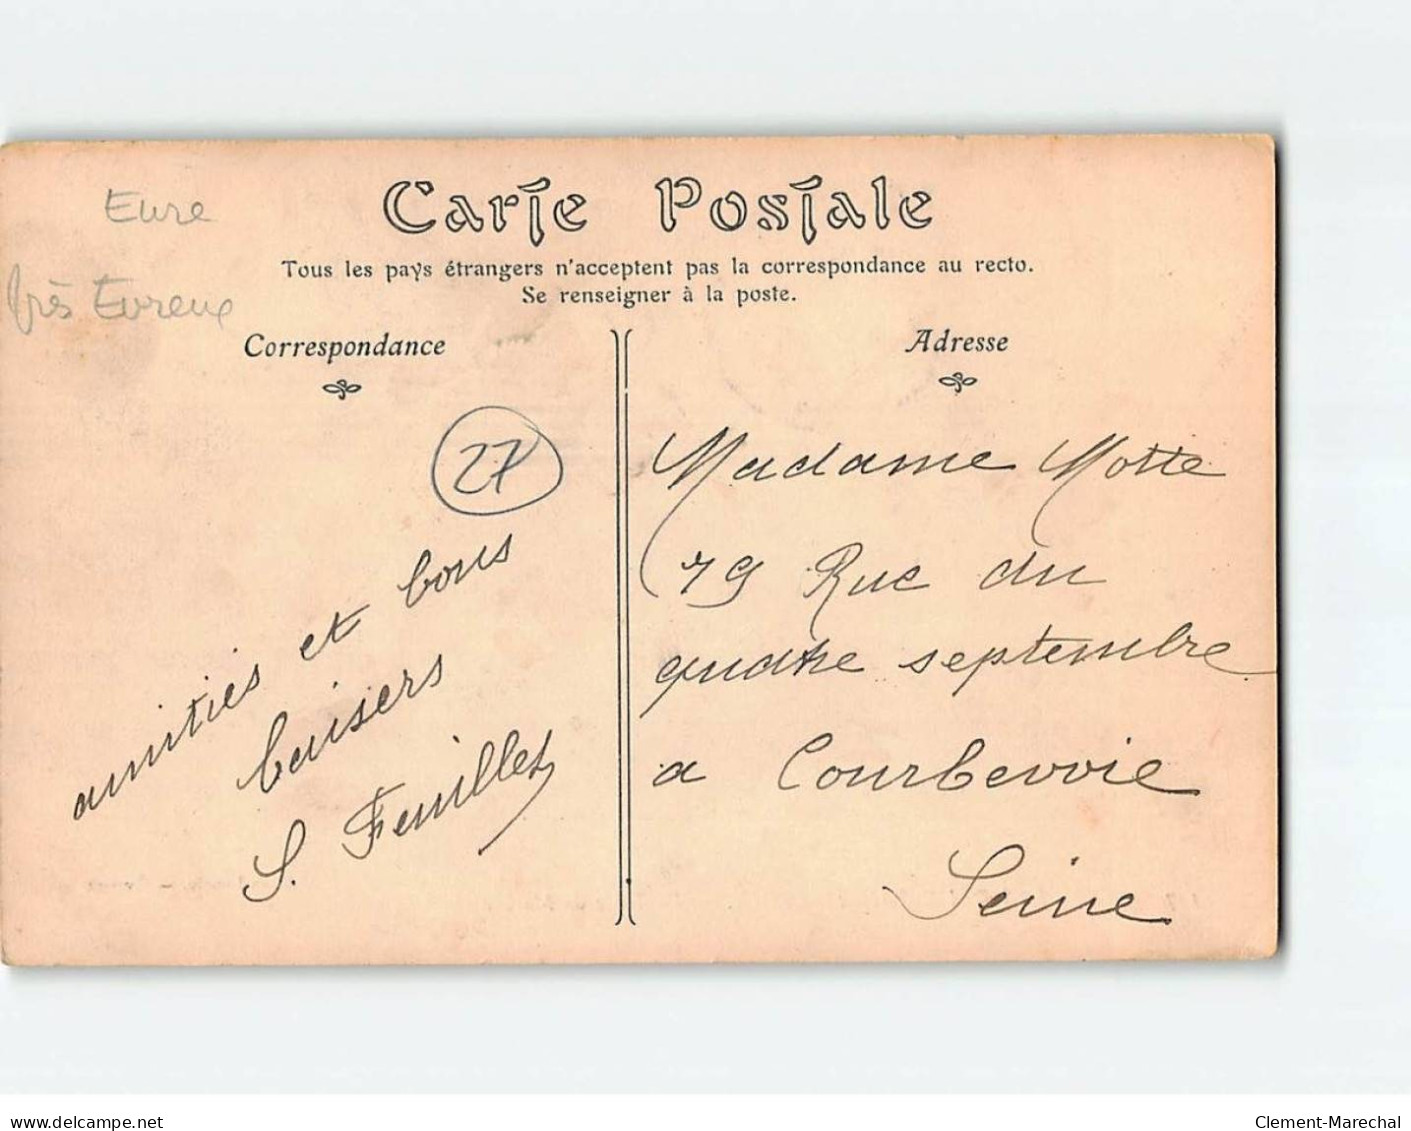 Carte Postale
Tous les pays étrangers n'acceptent pas la correspondance au recto.
Se renseigner à la poste.
Eure
près Evreux
Correspondance
27
amitiés et bons
baisers
S. Feuillet
Adresse
Madame Motte
79 Rue du
quatre septembre
a Courbevoie
Seine
www.delcampe.net
Clement-Marechal